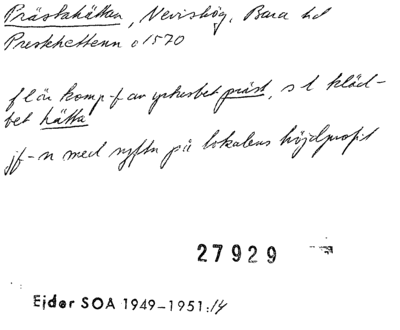 Prästahättan, Nevishög, Bara hd
Prestehettenn o 1570
f l är komp-f av yrkesbet präst, s l kläd-
bet hätta
jf-n med syftn på lokalens höjdprofil
27929
Ejder SOA 1949-1951:14